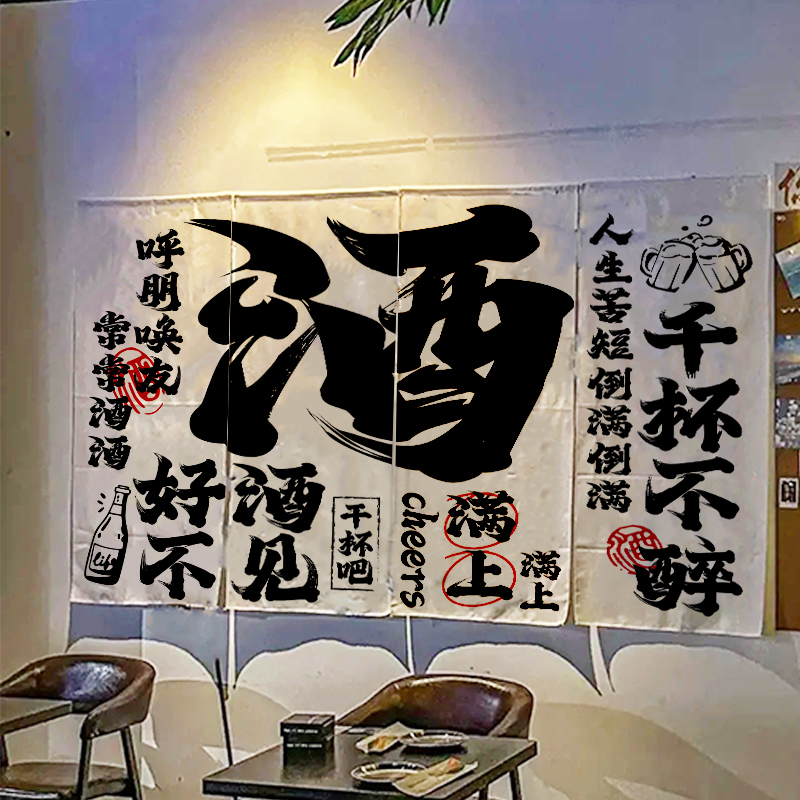 酒
呼朋唤友
常常酒酒
好酒
不见
干杯吧
cheers
满上
满上
人生苦短倒满倒满
干杯不醉